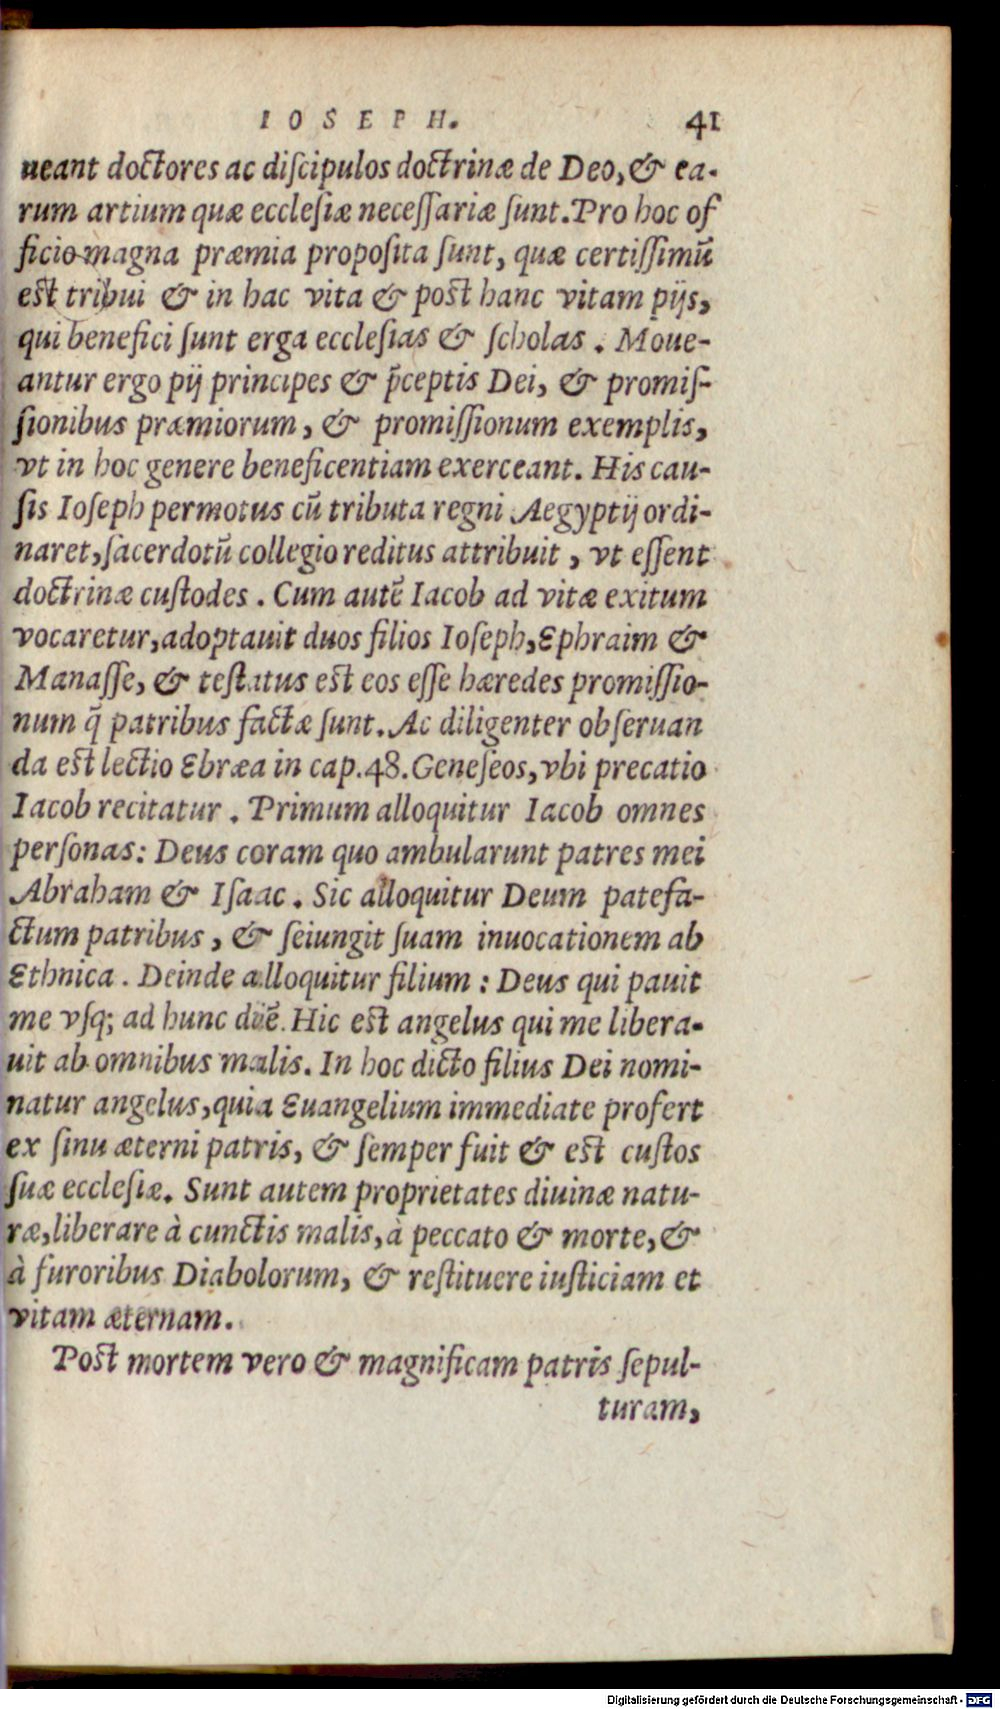 IOSEPH. 41
ueant doctores ac diſcipulos doctrinæ de Deo, & ea-
rum artium quæ ecclesiæ neceſſariæ ſunt. Pro hoc of
ficio magna præmia propoſita ſunt, quæ certiſſimū
est tribui & in hac vita & post hanc vitam pijs,
qui benefici ſunt erga ecclesias & ſcholas. Moue-
antur ergo pij principes & p̄ceptis Dei, & promiſ-
ſionibus præmiorum, & promiſſionum exemplis,
vt in hoc genere beneficentiam exerceant. His cau-
ſis Ioſeph permotus cū tributa regni Aegyptij ordi-
naret, ſacerdotū collegio reditus attribuit, vt eſſent
doctrinæ cuſtodes. Cum autē Iacob ad vitæ exitum
vocaretur, adoptauit duos filios Ioſeph, Ephraim &
Manaſſe, & teſtatus est eos eſſe hæredes promiſſio-
num q̄ patribus factæ ſunt. Ac diligenter obſeruan
da est lectio Ebræa in cap. 48. Geneſeos, vbi precatio
Iacob recitatur. Primum alloquitur Iacob omnes
perſonas: Deus coram quo ambularunt patres mei
Abraham & Iſaac. Sic alloquitur Deum patefa-
ctum patribus, & ſeiungit ſuam inuocationem ab
Ethnica. Deinde alloquitur filium: Deus qui pauit
me vſq; ad hunc diē. Hic est angelus qui me libera-
uit ab omnibus malis. In hoc dicto filius Dei nomi-
natur angelus, quia Euangelium immediate profert
ex ſinu æterni patris, & ſemper fuit & est cuſtos
ſuæ ecclesiæ. Sunt autem proprietates diuinæ natu-
ræ, liberare à cunctis malis, à peccato & morte, &
à furoribus Diabolorum, & reſtituere iuſticiam et
vitam æternam.
Post mortem vero & magnificam patris ſepul-
turam,
Digitalisierung gefördert durch die Deutsche Forschungsgemeinschaft - DFG